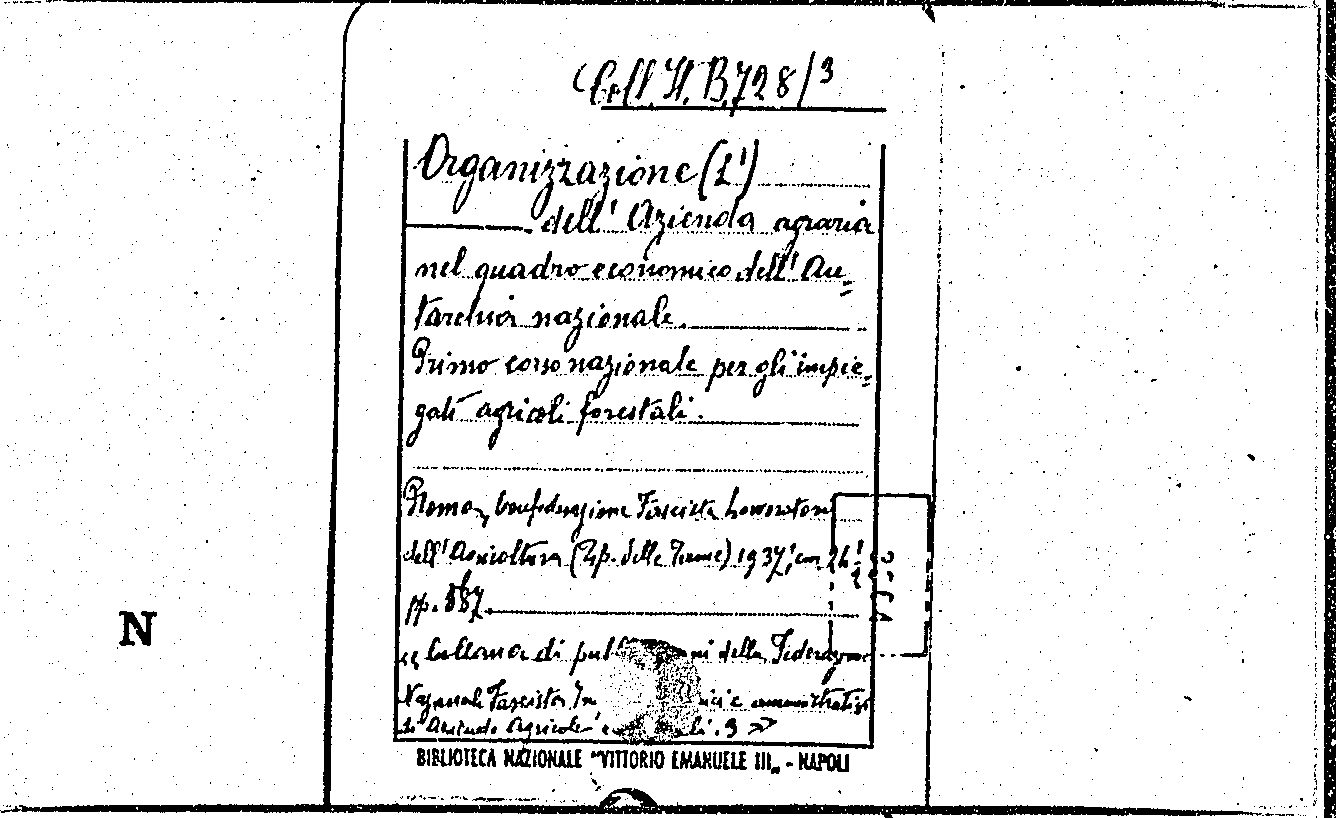 Coll. It. B. 728/3
Organizzazione (L')
dell' Azienda agraria
nel quadro economico dell' Au=
tarchia nazionale.
Primo corso nazionale per gli impie=
gati agricoli forestali.
Roma, Confederazione Fascista Lavoratori
dell'Agricoltura (Tip. delle Terme) 1937, cm 24
pp.
« Collana di della Federazione
Nazionale Fascista amministrativi
di Aziende Agricole e 3 »
BIBLIOTECA NAZIONALE "VITTORIO EMANUELE III„ - NAPOLI
N